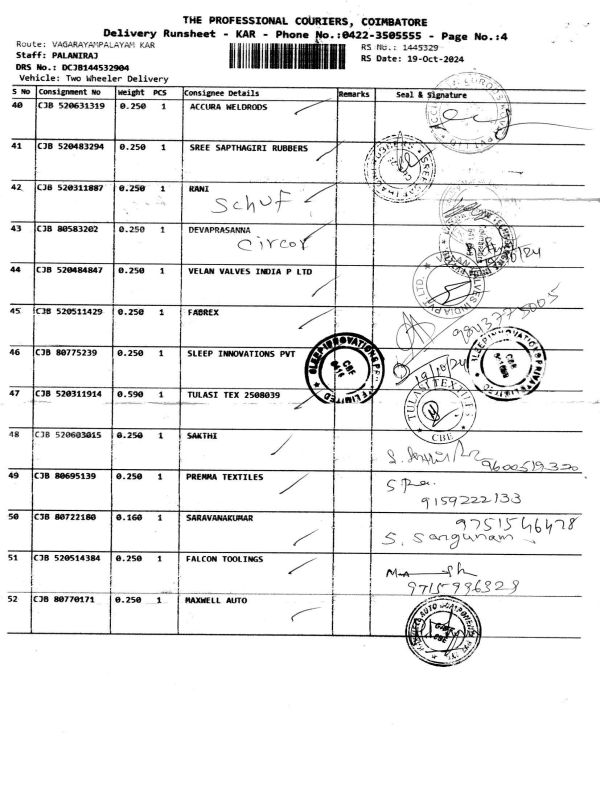 THE PROFESSIONAL COURIERS, COIMBATORE
Delivery Runsheet - KAR - Phone No.:0422-3505555 - Page No.:4
Route: VAGARAYAMPALAYAM KAR
RS No.: 1445329
Staff: PALANIRAJ
RS Date: 19-Oct-2024
DRS No.: DCJB144532904
Vehicle: Two Wheeler Delivery
S No Consignment No Weight PCS Consignee Details Remarks Seal & Signature
40 CJB 520631319 0.250 1 ACCURA WELDRODS
41 CJB 520483294 0.250 1 SREE SAPTHAGIRI RUBBERS
42 CJB 520311887 0.250 1 RANI
Schuf
43 CJB 80583202 0.250 1 DEVAPRASANNA
Circor
44 CJB 520484847 0.250 1 VELAN VALVES INDIA P LTD
VELAN VALVES INDIA PVT LTD.
45 CJB 520511429 0.250 1 FABREX
9843775005
46 CJB 80775239 0.250 1 SLEEP INNOVATIONS PVT
SLEEP INNOVATIONS PRIVATE LIMITED
CBE
19/10/24
SLEEP INNOVATIONS PRIVATE LIMITED
CBE
47 CJB 520311914 0.590 1 TULASI TEX 2508039
TULASI TEXTILES
CBE
48 CJB 520603015 0.250 1 SAKTHI
9600519320
49 CJB 80695139 0.250 1 PREMMA TEXTILES
9159222133
50 CJB 80722180 0.160 1 SARAVANAKUMAR
9751546478
S. Sangunam
51 CJB 520514384 0.250 1 FALCON TOOLINGS
9715996329
52 CJB 80770171 0.250 1 MAXWELL AUTO
AUTO COMPONENTS
CBE